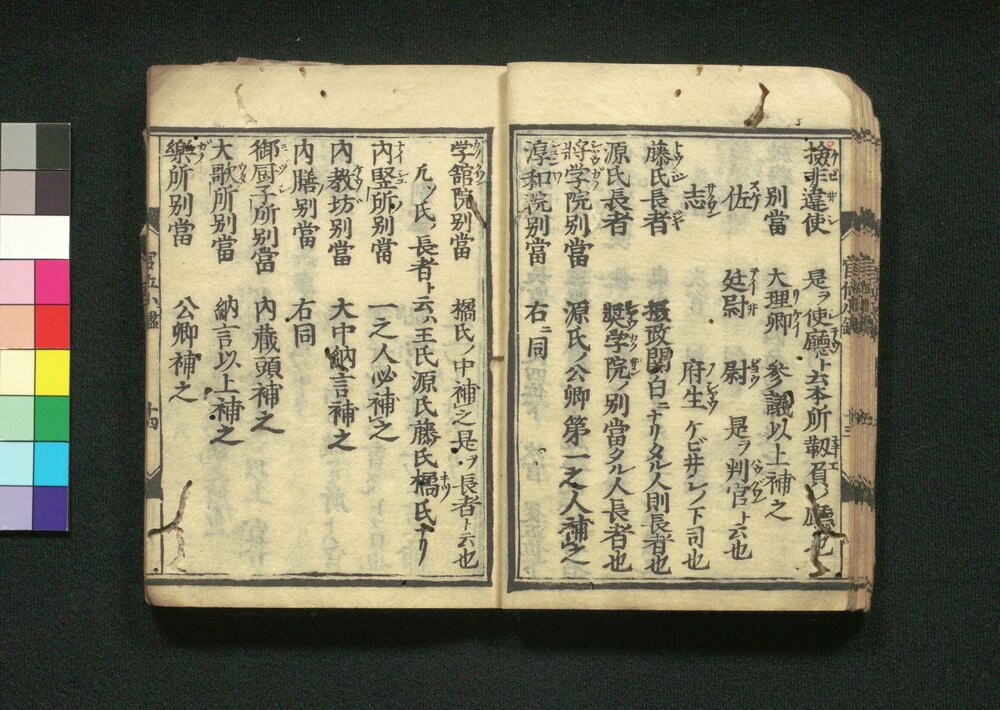 撿非違使 是ヲ使廳ト云本所靱負ノ廳也
別當 大理卿 参議以上補之
佐 廷尉 尉 是ヲ判官ト云也
志 府生 ケビ井シノ下司也
藤氏長者 摂政関白ニナリタル人則長者也
源氏長者 奨学院ノ別當タル人長者也
奨学院別當 源氏ノ公卿第一之人補之
淳和院別當 右ニ同
学舘院別當 橘氏ノ中補之是ヲ長者ト云也
凡ソ氏ノ長者ト云ハ王氏源氏藤氏橘氏ナリ
内竪所別當 一之人必補之
内教坊別當 大中納言補之
内膳別當 右同
御厨子所別當 内蔵頭補之
大歌所別當 納言以上補之
樂所別當 公卿補之
十四